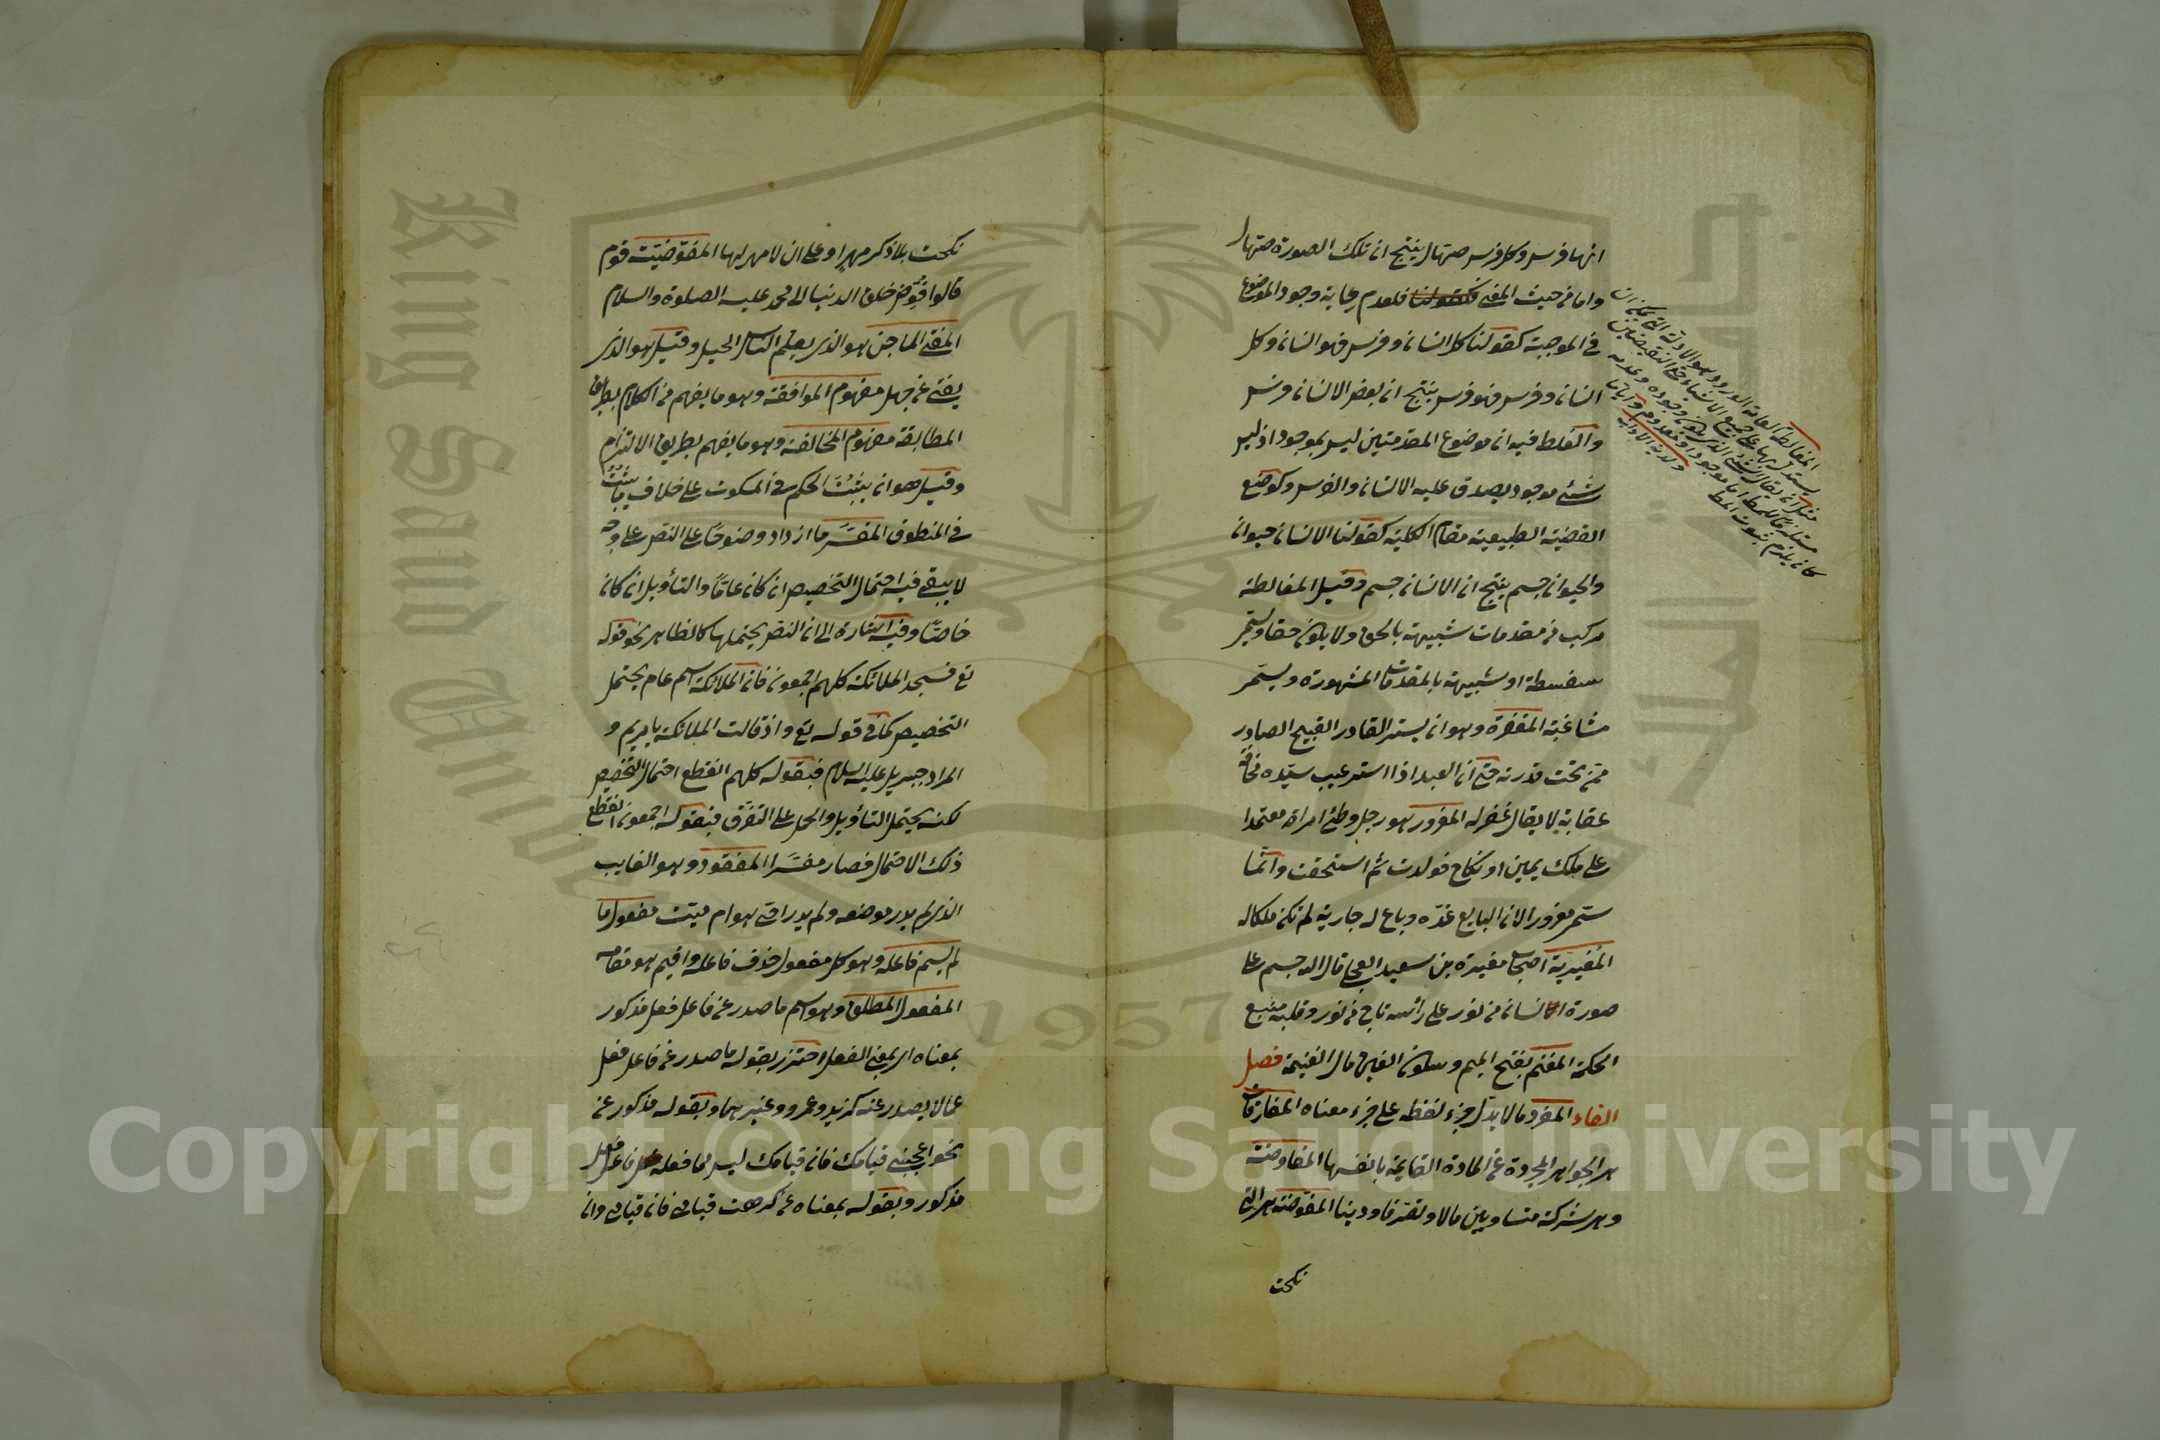 انها فرس وكل فرس صهال ينتج ان تلك الصورة صهال
واما من حيث المعنى فكقولنا فلعدم رعاية وجود الموضوع
في الموجبة كقولنا كل انسان وفرس فهو انسان وكل
انسان وفرس فهو فرس ينتج ان بعض الانسان فرس
والغلط فيه ان موضوع المقدمتين ليس بموجود اذ ليس
شئ موجود يصدق عليه الانسان والفرس وكوضع
القضية الطبيعية مقام الكلية كقولنا الانسان حيوان
والحيوان جسم ينتج ان الانسان جسم وقيل المغالطة
مركب من مقدمات شبيهة بالحق ولا يكون حقا ويسمى
سفسطة او شبيهة بالمقدمات المشهورة ويسمى
مشاغبة المغفرة وهو ان يستر القادر القبيح الصادر
ممن تحت قدرته حتى ان العبد اذا استر عيب سيده مخافة
عقابه لا يقال غفر له المغرور هو رجل وطئ امراة معتمدا
على ملك يمين او نكاح فولدت ثم استحقت وانما
سمى مغرورا لان البايع غره وباع له جارية لم تكن ملكا له
المغيرية اصحاب مغيرة بن سعيد العجلى قال الله جسم على
صورة انسان من نور على رأسه تاج من نور وقلبه منبع
الحكمة المغنم بفتح الميم وسكون الغين مال الغنيمة فصل
الفاء المفرد ما لا يدل جزء لفظه على جزء معناه المفارقات
هى الجواهر المجردة عن المادة القايمة بانفسها المفاوضة
وهى شركة متساويين مالا وتصرفا ودينا المفوضة هى التى
نكحت
المغالطة العامة الورود هو الادلة التى يمكن ان
يستدل بها على جميع الاشياء حتى النقيضين
نكحت بلا ذكر مهر او على ان لا مهر لها المفوضية قوم
قالوا فوض خلق الدنيا الى محمد عليه الصلوة والسلام
المفتى الماجن هو الذى يعلم الناس الحيل وقيل هو الذى
يفتى عن جهل مفهوم الموافقة وهو ما يفهم من الكلام بطريق
المطابقة مفهوم المخالفة وهو ما يفهم بطريق الالتزام
وقيل هو ان يثبت الحكم في المسكوت على خلاف ما يثبت
في المنطوق المفسر ما ازداد وضوحا على النص على وجه
لا يبقى فيه احتمال التخصيص ان كان عاما والتأويل ان كان
خاصا وفيه اشارة الى ان النص يحتملها كالظاهر نحو قوله
تع فسجد الملائكة كلهم اجمعون فان الملائكة اسم عام يحتمل
التخصيص كما في قوله تع واذ قالت الملائكة يا مريم و
المراد جبريل عليه السلام فبقوله كلهم انقطع احتمال التخصيص
لكنه يحتمل التأويل والحمل على التفرق فبقوله اجمعون انقطع
ذلك الاحتمال فصار مفسرا المفقود وهو الغايب
الذى لم يدر موضعه ولم يدر احى هو ام ميت مفعول ما
لم يسم فاعله وهو كل مفعول حذف فاعله واقيم هو مقامه
المفعول المطلق وهو اسم ما صدر عن فاعل فعل مذكور
بمعناه اى بمعنى الفعل احترز بقوله ما صدر عن فاعل فعل
عما لا يصدر عنه كزيد وعمرو وغيرهما وبقوله مذكور عن
نحو اعجبنى قيامك فان قيامك ليس مما فعله فاعل فعل
مذكور وبقوله بمعناه عن كرهت قيامى فان قيامى وان